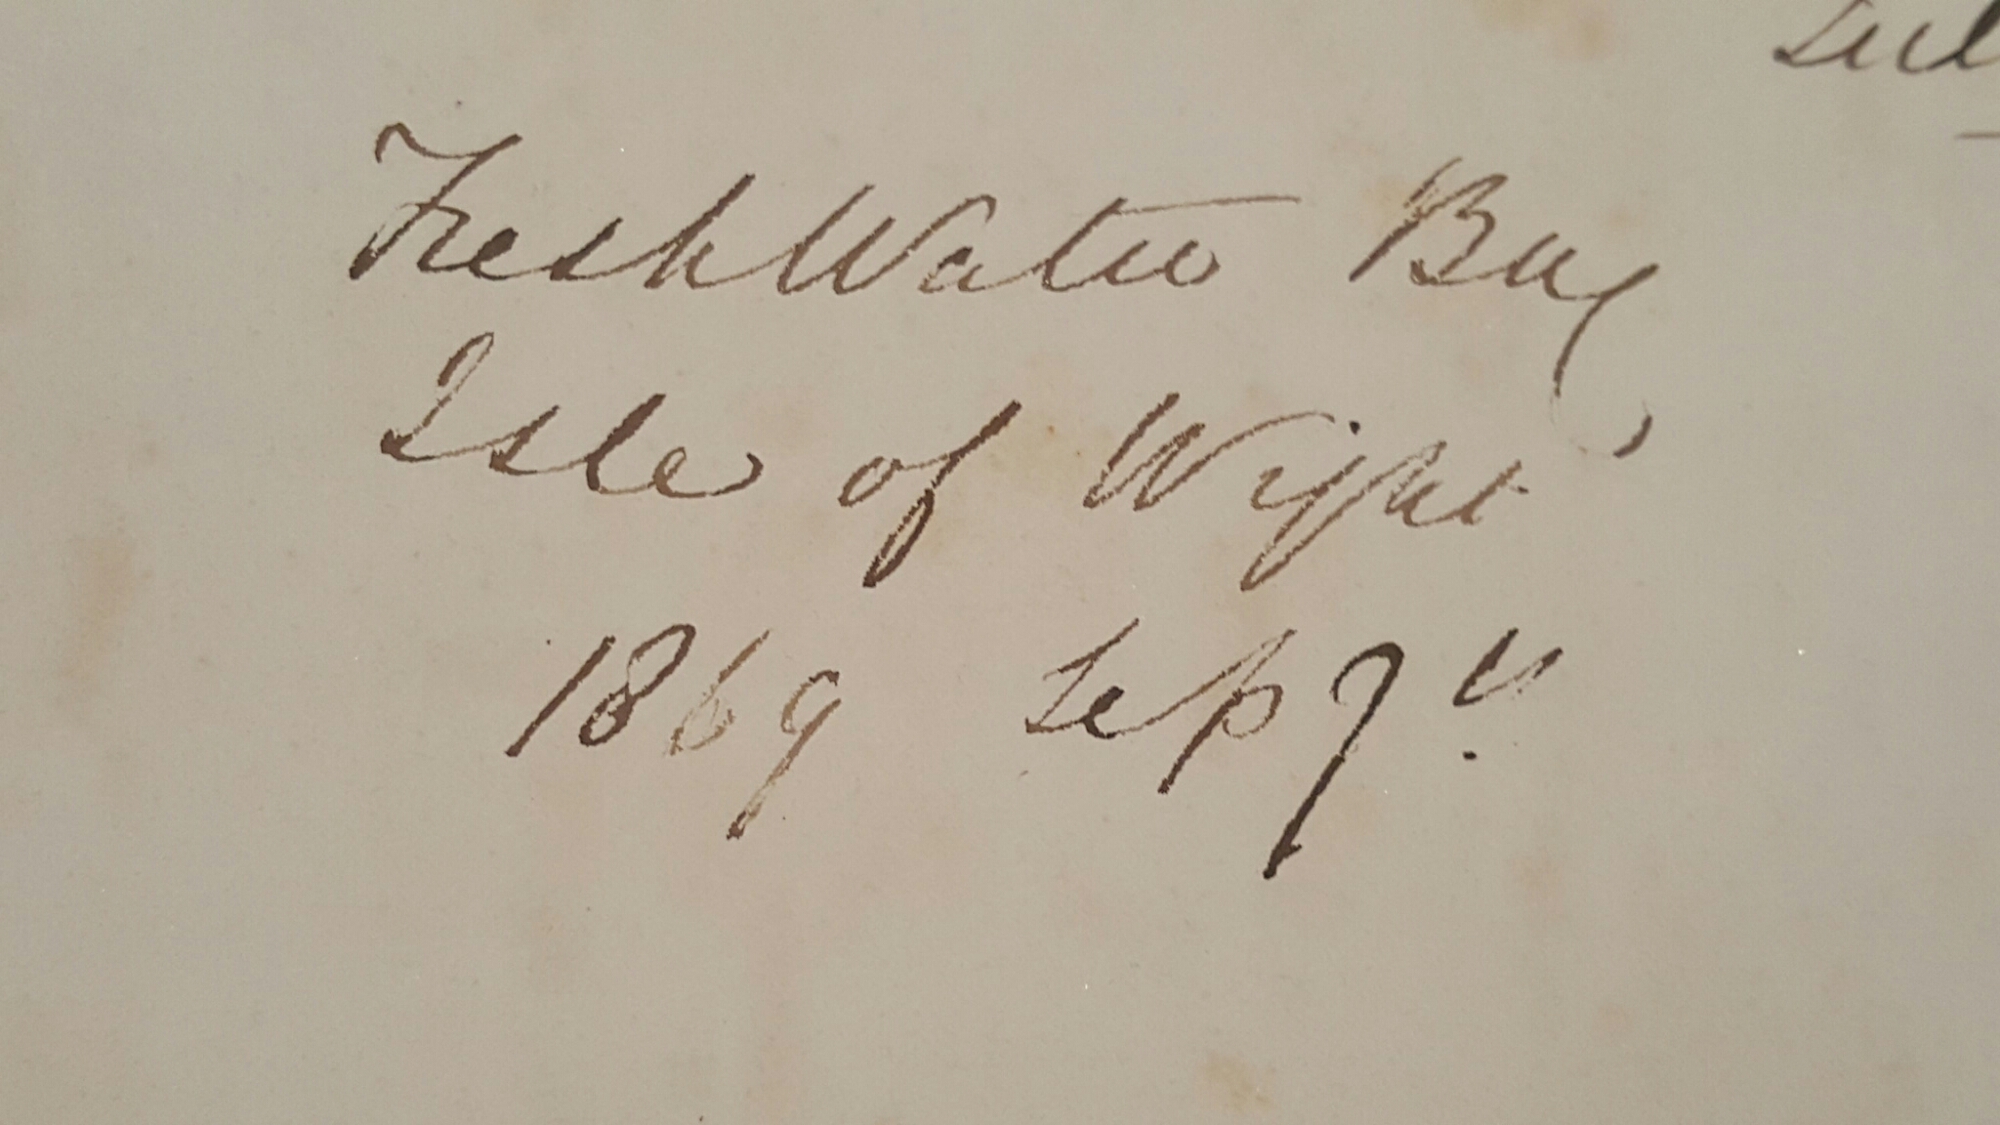 FreshWater Bay
Isle of Wight
1869 Sep 7th